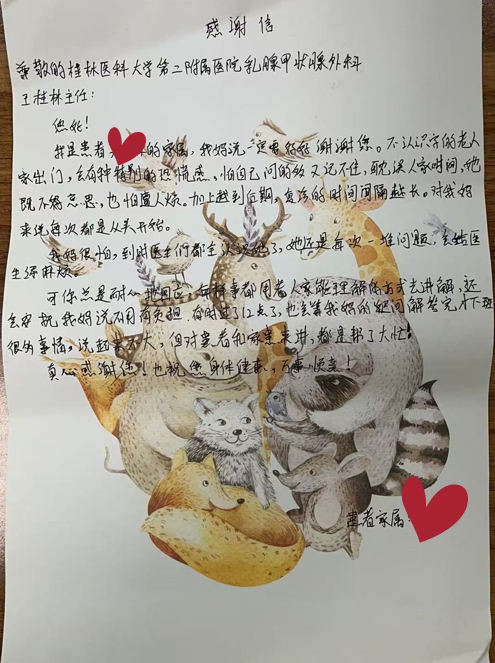 感谢信
尊敬的桂林医科大学第二附属医院乳腺甲状腺外科
王桂林主任：
您好！
我是患者的家属，我妈说一定要好好谢谢您。不认识字的老人
家出门，会有种特别的恐慌感、怕自己问的多又记不住，耽误人家时间，她
既不好意思，也怕遭人烦。加上越到后期，复诊的时间间隔越长。对我妈
来说每次都是从头开始。
我妈很怕，到时医生们都会认她了，她还是每次一堆问题，会给医
生添麻烦。
可你总是耐心地回应，每件事都用老人家能理解的方式去讲解，还
会安抚我妈说不用有负担。有时过了12点了，也会等我妈的疑问解答完才下班
很多事情，说起来不大，但对患者和家属来讲，都是帮了大忙！
真心感谢您！也祝您身体健康，万事顺意！
患者家属：